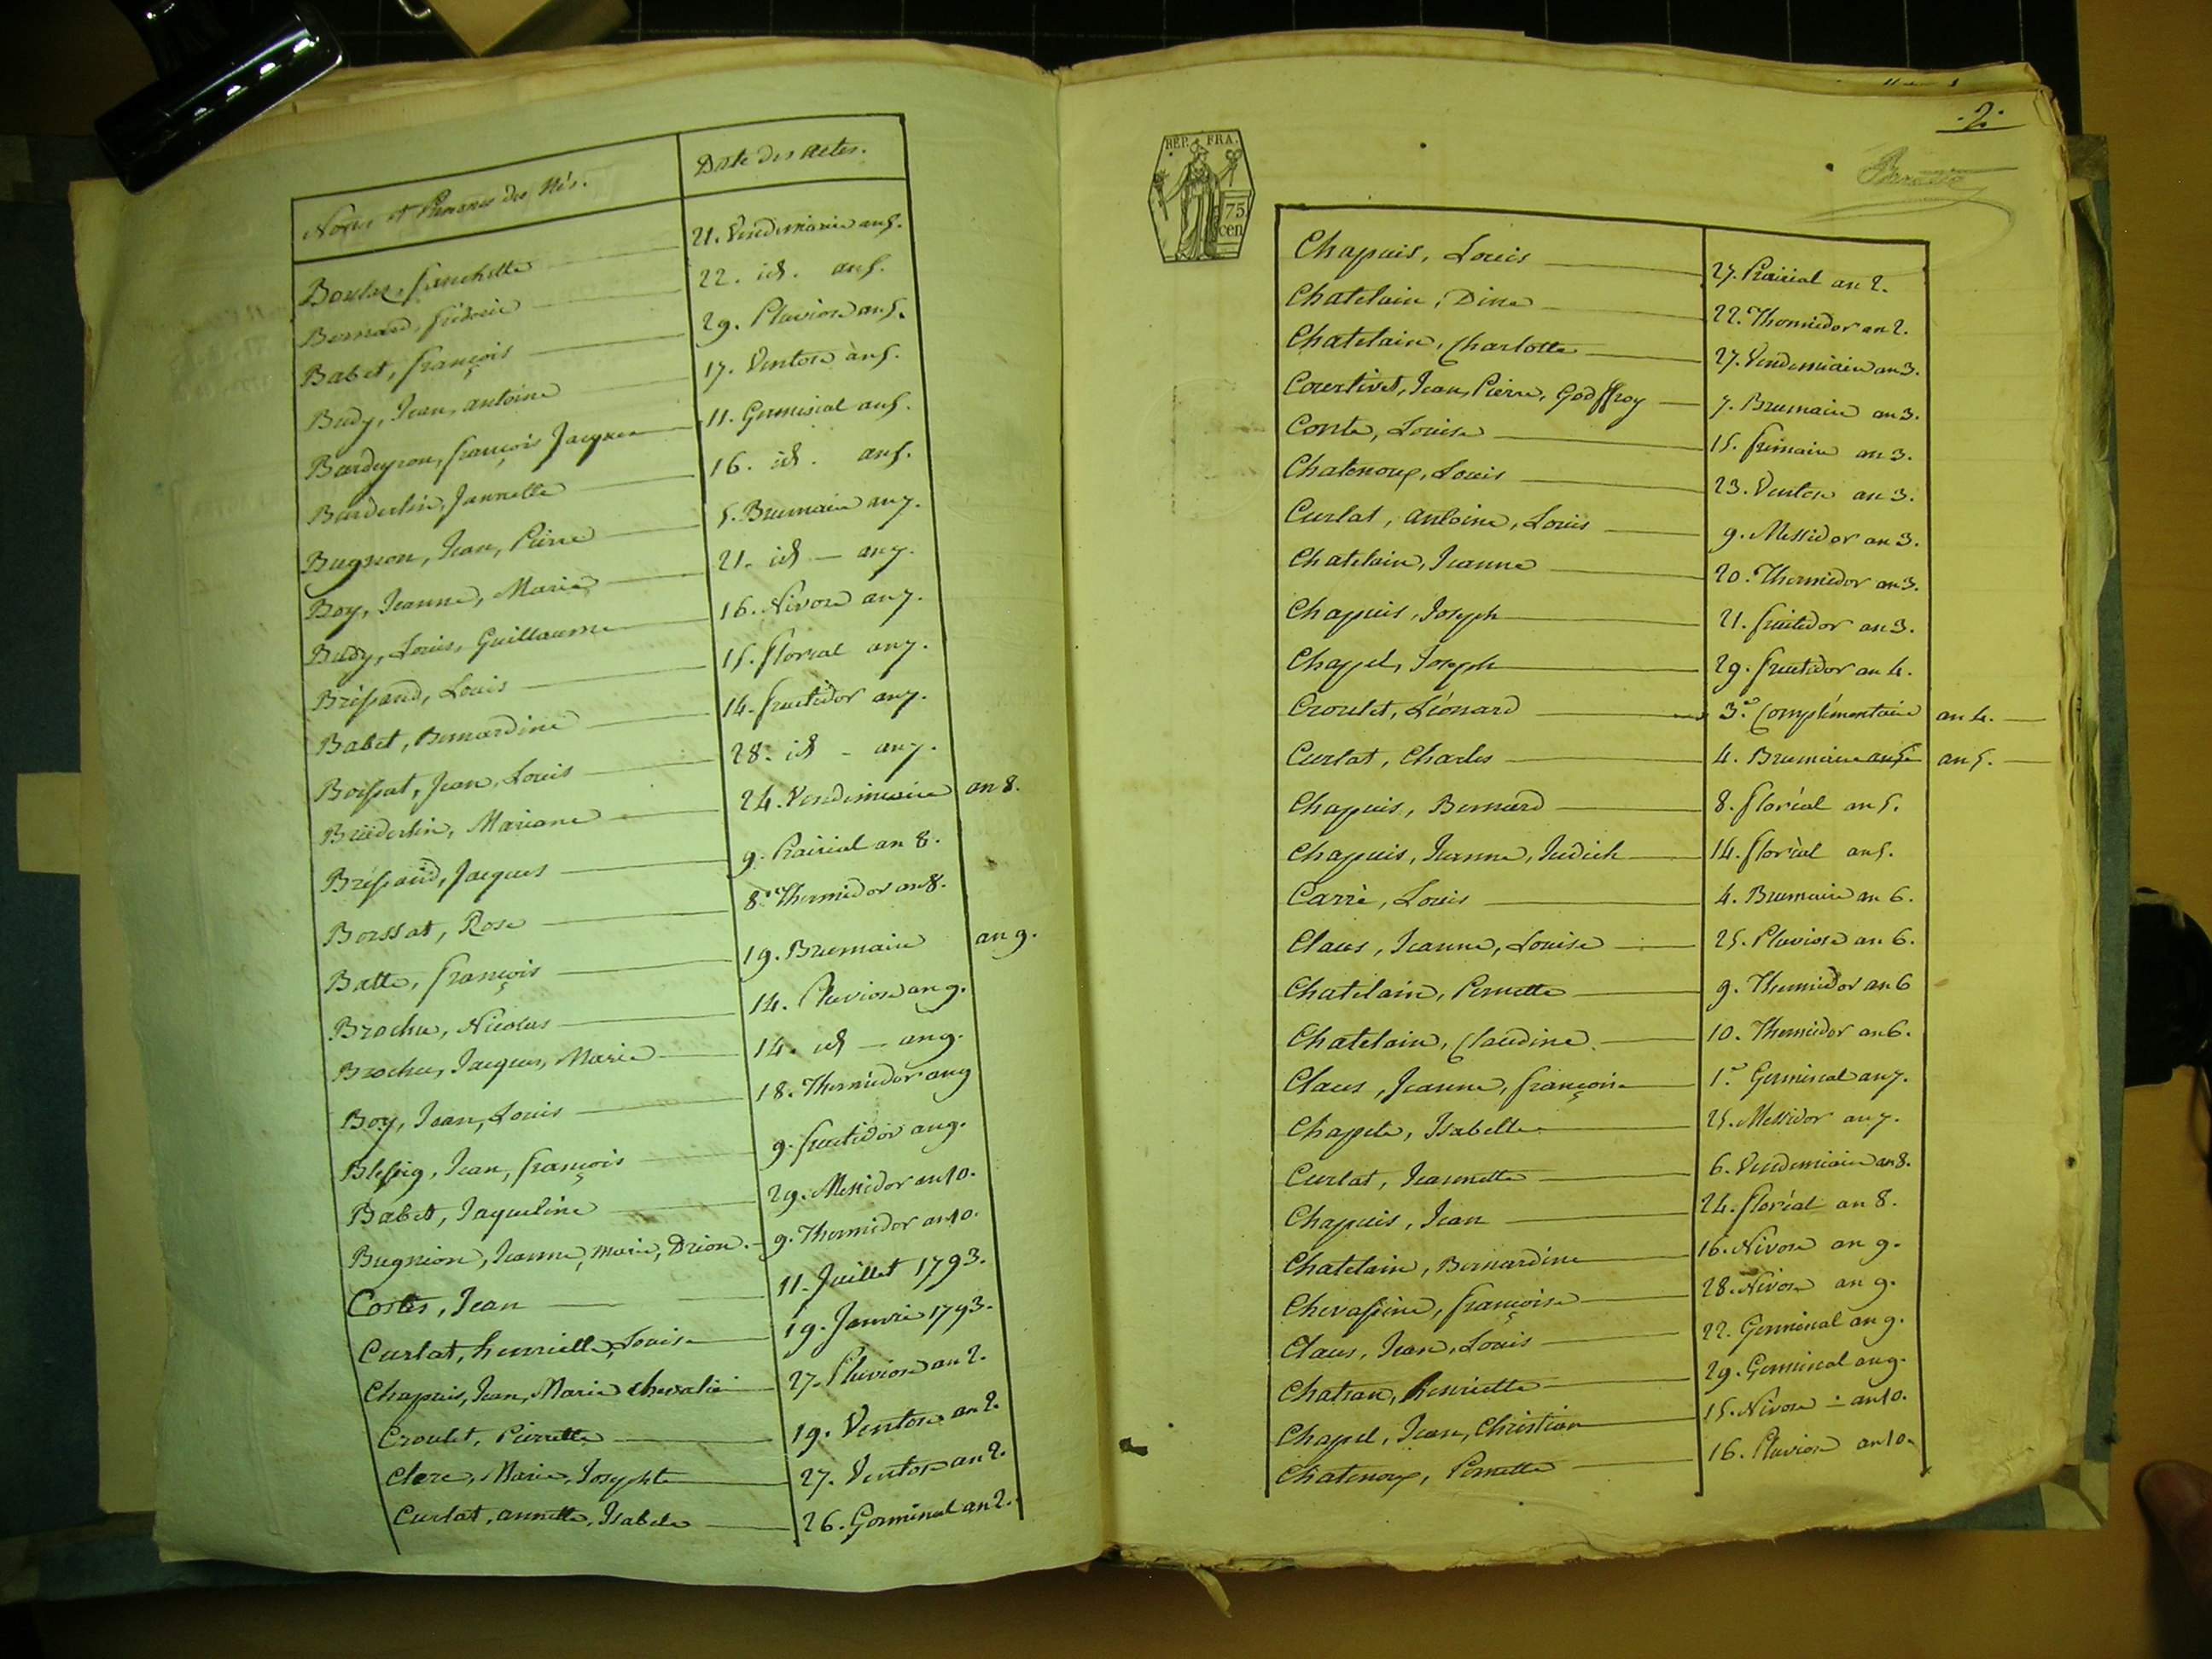 Noms et Prenoms des Nés. Date des Actes.
Boulaz, franchette 21. Vendemiaire an 5.
Bernard, fréderic 22. id. an 5.
Babet, françois 29. Pluviose an 5.
Budy, Jean, antoine 17. Ventose an 5.
Bardeyron, françois Jacques 11. Germinal an 5.
Jannette 16. id. an 5.
Bugnion, Jean, Pierre 5. Brumaire an 7.
Boy, Jeanne, Marie 21. id — an 7.
Budy, Louis, Guillaume 16. Nivose an 7.
Brissaud, Louis 15. floreal an 7.
Babet, Bernardine 14. fructidor an 7.
Boissat, Jean, Louis 28. id - an 7.
Brüderlin, Mariane 24. Vendemiaire an 8.
Brissaud, Jacques 9. Prairial an 8.
Boissat, Rose 8. Thermidor an 8.
Batte, françois 19. Brumaire an 9.
Brochu, Nicolas 14. Pluviose an 9.
Brochu, Jacques, Marie 14. id — an 9.
Boy, Jean, Louis 18. Thermidor an 9
Blessig, Jean, françois 9. fructidor an 9.
Babet, Jaqueline 29. Messidor an 10.
Bugnion, Jeanne, marie, Drion. 9. Thermidor an 10.
Costes, Jean 11. Juillet 1793.
Curlat, henriette, Louise 19. Janvrié 1793.
Chapuis, Jean, Marie chevalié 27. Pluviose an 2.
Croulet, Pierrette 19. Ventose an 2.
Clerc, Marie, Josephte 27. Ventose an 2.
Curlat, annette, Isabele 26. Germinal an 2.
.2.
REP. FRA.
75
cen
Chapuis, Louis 27. Prairial an 2.
Chatelain, Dine 22. Thermidor an 2.
Chatelain, Charlotte 27. Vendemiaire an 3.
Courtivet, Jean, Pierre, Godffroy 7. Brumaire an 3.
Conte, Louise 15. frimaire an 3.
Chatenoux, Louis 23. Ventose an 3.
Curlat, antoine, Louis 9. Messidor an 3.
Chatelain, Jeanne 20. Thermidor an 3.
Chapuis, Joseph 21. fructidor an 3.
Chappel, Joseph 29. fructidor an 4.
Croulet, Léonard 3e. Complémentaire an 4.
Curlat, Charles 4. Brumaire an 5 an 5.
Chapuis, Bernard 8. floréal an 5.
Chapuis, Jeanne, Judich 14. floréal an 5.
Carré, Louis 4. Brumaire an 6.
Claus, Jeanne, Louise 25. Pluviose an 6.
Chatelain, Pernette 9. Thermidor an 6
Chatelain, Claudine. 10. Thermidor an 6.
Claus, Jeanne, françoise 1er Germinal an 7.
Chappele, Isabelle 25. Messidor an 7.
Curlat, Jeannette 6. Vendemiaire an 8.
Chapuis, Jean 24. floréal an 8.
Chatelain, Bernardine 16. Nivose an 9.
Chevassine, françoise 28. Nivose an 9.
Claus, Jean, Louis 22. Germinal an 9.
Chatran, Henriette 29. Germinal an 9.
Chappel, Jean, Christian 15. Nivose - an 10.
Chatenoux, Pernette 16. Pluviose an 10.